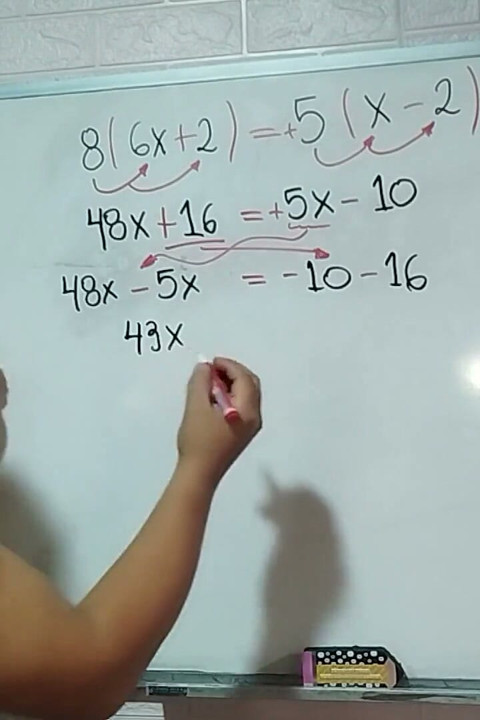 8(6x+2)=+5(x-2)
48x+16=+5x-10
48x-5x=-10-16
43x